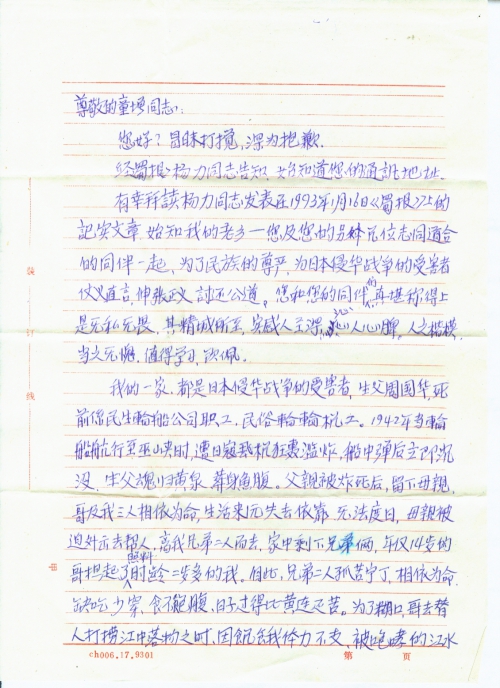 尊敬的童增同志:
您好?冒昧打搅,深为抱歉.
经蜀报杨力同志告知,始知道您的通讯地址.
有幸拜读杨力同志发表在1993年1月16日《蜀报》的
记实文章,始知我的老乡—您及您的另外几位志同道合
的同伴一起,为了民族的尊严,为日本侵华战争的受害者
仗义直言,伸张正义,讨还公道。您和您的同伴们真堪称得上
是无私无畏,其精诚所至,实感人至深,沁人心脾,人之楷模,
当之无愧,值得学习,钦佩.
我的一家,都是日本侵华战争的受害者,生父周国华,死
前系民生轮船公司职工,民俗轮轮机工。1942年当轮
船航行至巫山峡时,遭日寇我机狂轰滥炸,船中弹后立即沉
没,生父魂归黄泉,葬身鱼腹。父亲被炸死后,留下母亲,
哥及我三人相依为命,生活来元失去依靠,无法度日,母亲被
迫外出去帮人,离我兄弟二人而去,家中剩下兄弟俩,年仅14岁的
哥担起了照料时龄二岁多的我。但此,兄弟二人孤苦宁丁,相依为命,
缺吃少穿,食不饱腹,日子过得比黄连还苦。为了糊口,哥去替
人打捞江中落物之时,因饥饿我体力不支,被咆哮的江水
装
订
线
ch006.17.9301
第 页